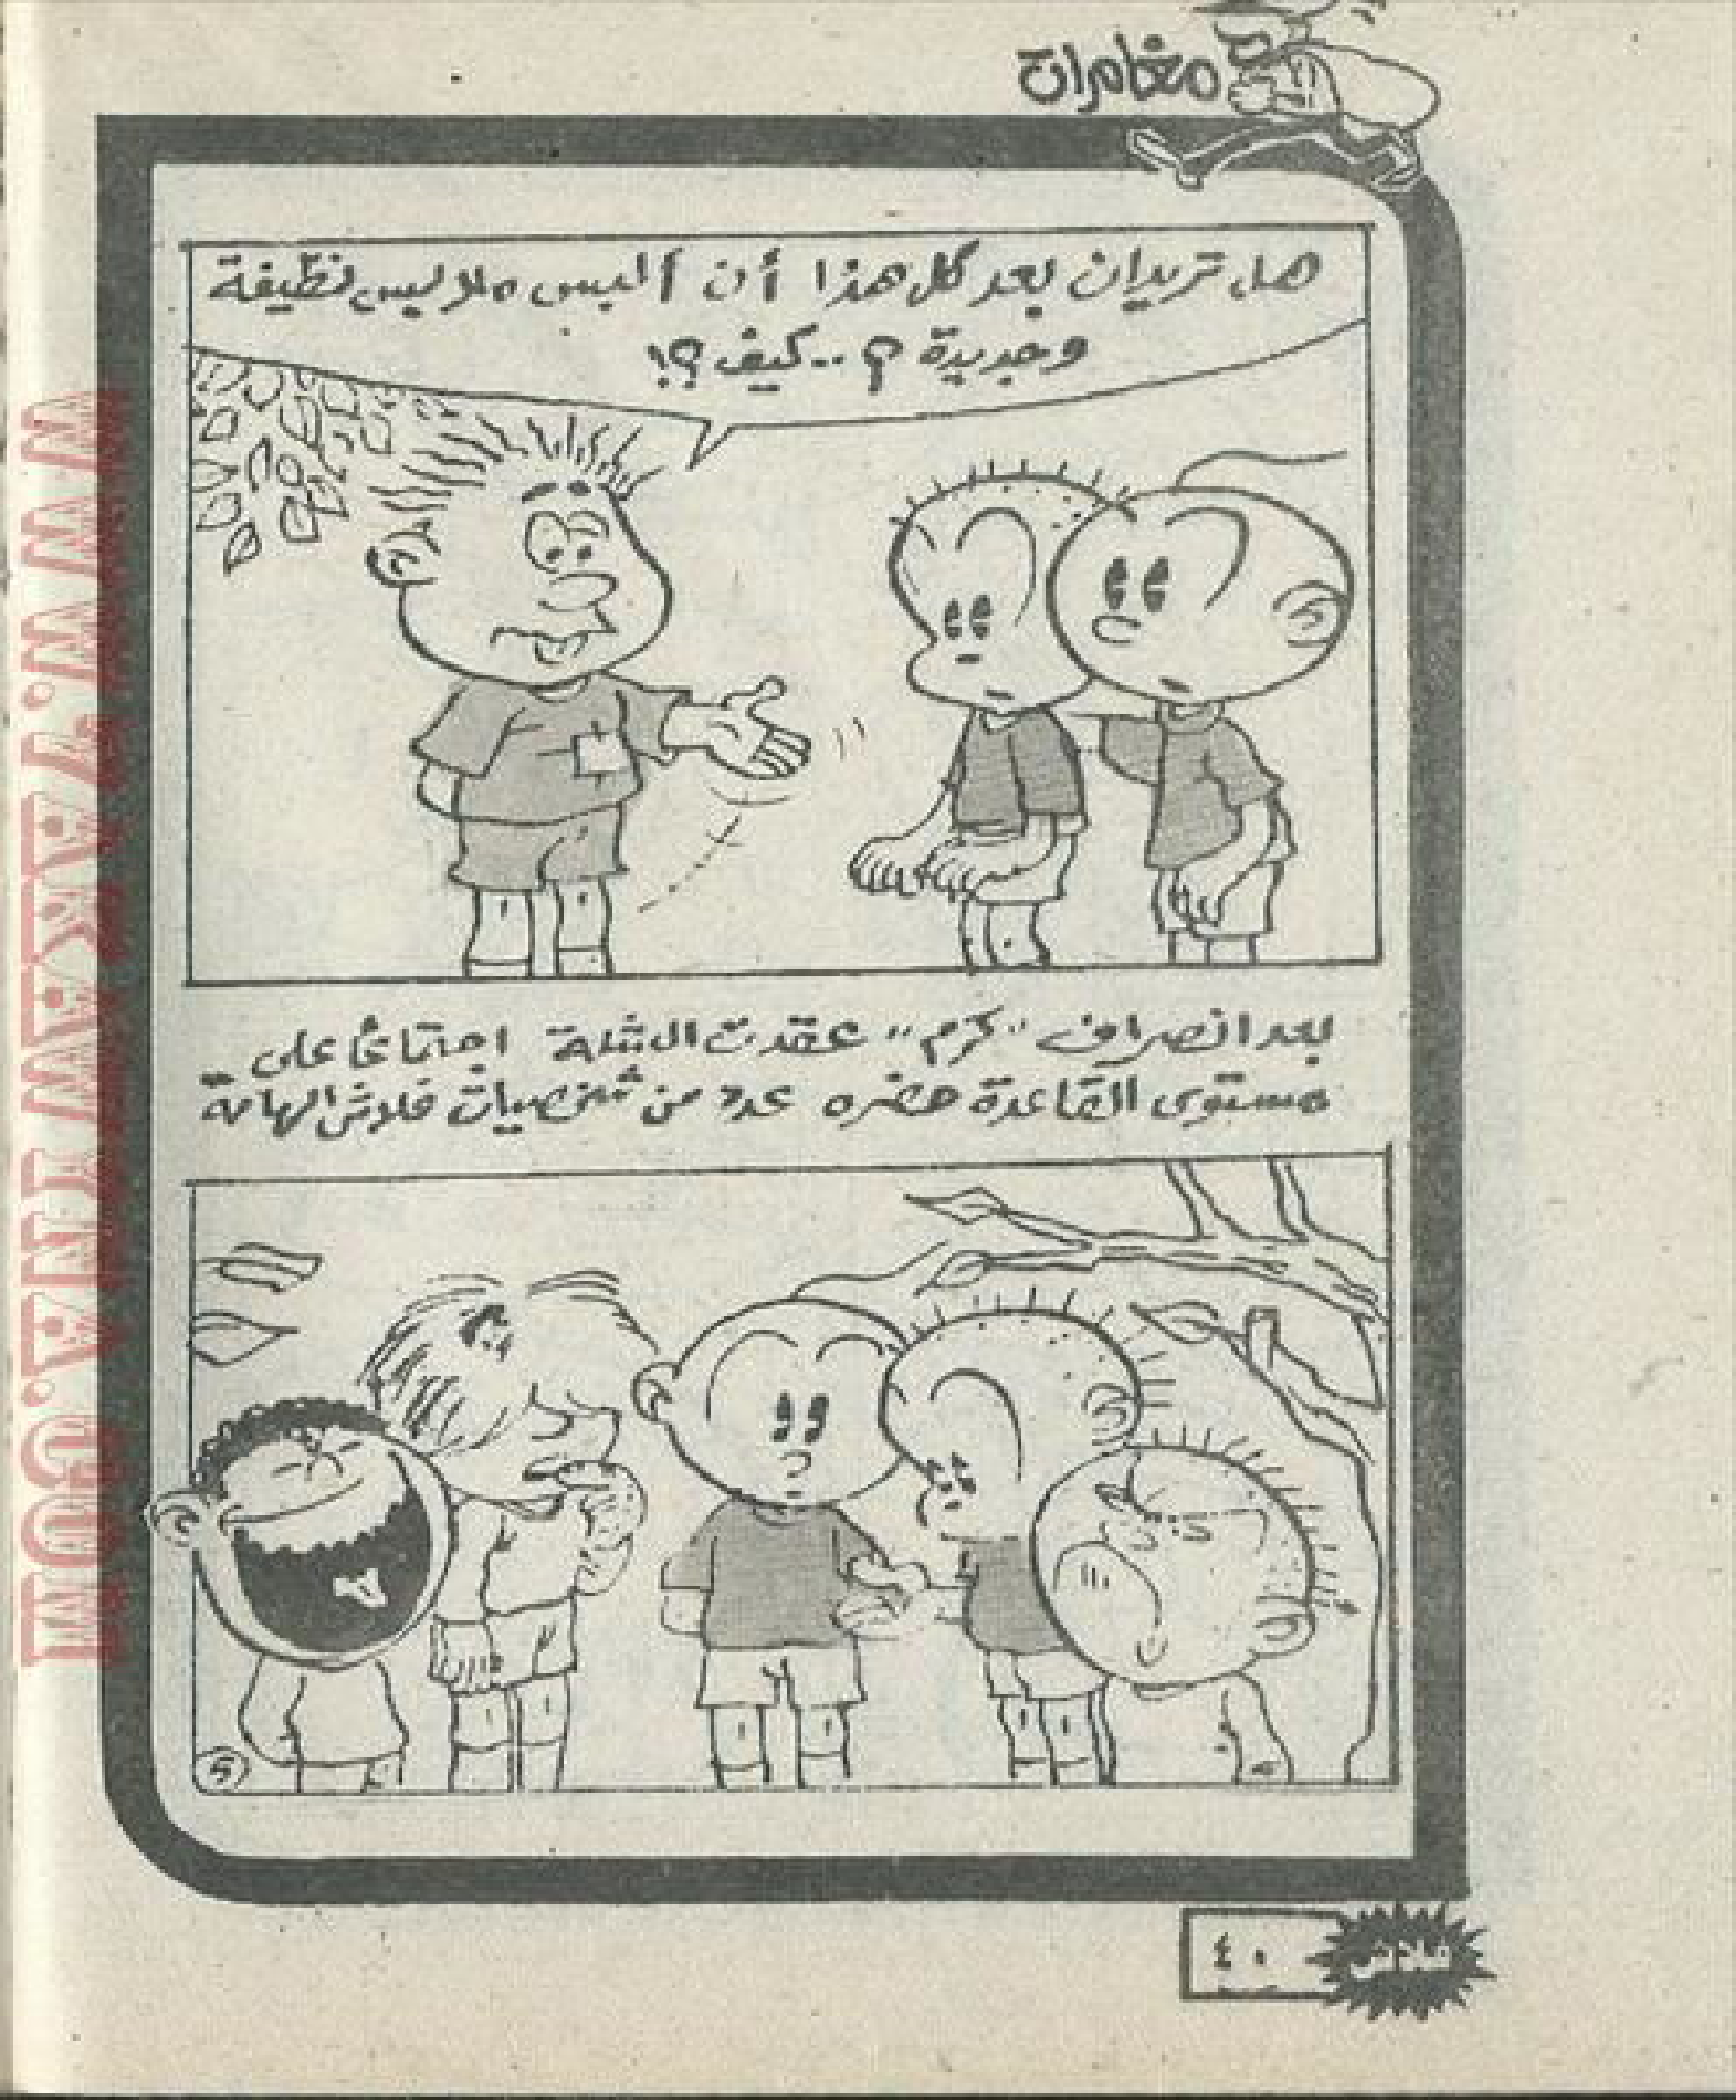 مغامرات
هل تريدان بعد كل هذا أن ألبس ملابس نظيفة
وجديدة ؟ .. كيف ؟!
بعد انصراف "كرم" عقدت الشلة اجتماعاً على
مستوى القاعدة حضره عدد من شخصيات فلاش الهامة
٥
فلاش
٤٠
WWW.VARKEY INMA.COM